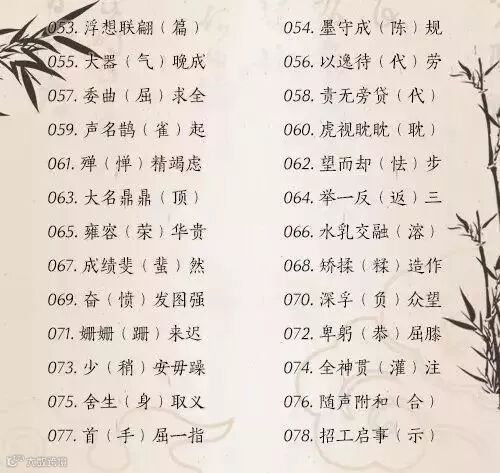 053. 浮想联翩（篇）
054. 墨守成（陈）规
055. 大器（气）晚成
056. 以逸待（代）劳
057. 委曲（屈）求全
058. 责无旁贷（代）
059. 声名鹊（雀）起
060. 虎视眈眈（耽）
061. 殚（惮）精竭虑
062. 望而却（怯）步
063. 大名鼎鼎（顶）
064. 举一反（返）三
065. 雍容（荣）华贵
066. 水乳交融（溶）
067. 成绩斐（蜚）然
068. 矫揉（糅）造作
069. 奋（愤）发图强
070. 深孚（负）众望
071. 姗姗（跚）来迟
072. 卑躬（恭）屈膝
073. 少（稍）安毋躁
074. 全神贯（灌）注
075. 舍生（身）取义
076. 随声附和（合）
077. 首（手）屈一指
078. 招工启事（示）